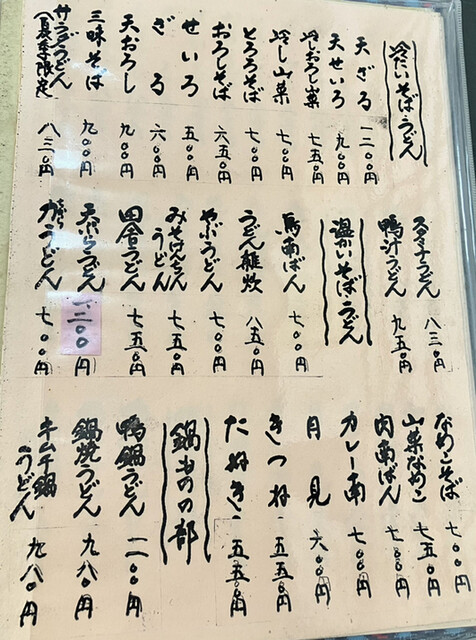 冷たいそばうどん
天ざる 一二〇〇円
天せいろ 九〇〇円
冷しおろし山菜 七五〇円
冷し山菜 七〇〇円
とろろそば 七〇〇円
おろしそば 六五〇円
せいろ 五〇〇円
ざる 六〇〇円
天おろし 九〇〇円
三味そば 九〇〇円
サラダうどん 八三〇円
(夏季限定)
スタミナうどん 八三〇円
鴨汁うどん 九五〇円
温かいそばうどん
鳥南ばん 七〇〇円
うどん雑炊 八五〇円
やぶうどん 七〇〇円
みそけんちんうどん 七五〇円
田舎うどん 七五〇円
天ぷらうどん 一、二〇〇円
力うどん 七〇〇円
なめこそば 七〇〇円
山菜なめこ 七五〇円
肉南ばん 七〇〇円
カレー南 七〇〇円
月見 六〇〇円
きつね 五五〇円
たぬき 五五〇円
鍋ものの部
鴨鍋うどん 一一〇〇円
鍋焼うどん 九八〇円
キムチ鍋うどん 九八〇円